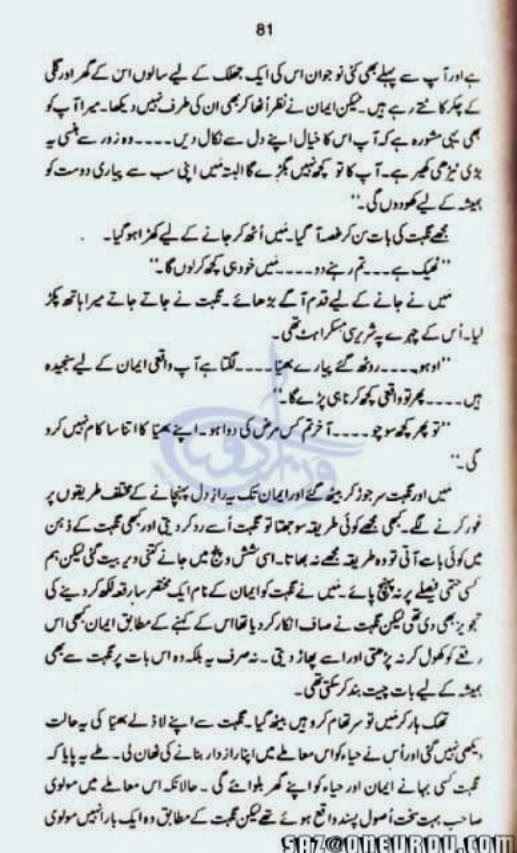 81
ہے اور آپ سے پہلے بھی کئی نوجوان اس کی ایک جھلک کے لیے سالوں اس کے گھر اور گلی
کے چکر کاٹتے رہے ہیں۔ لیکن ایمان نے نظر اُٹھا کر بھی ان کی طرف نہیں دیکھا۔ میرا آپ کو
بھی یہی مشورہ ہے کہ آپ اس کا خیال اپنے دل سے نکال دیں۔۔۔۔ وہ زور سے ہنسی یہ
بڑی ٹیڑھی کھیر ہے۔ آپ کا تو کچھ نہیں بگڑے گا البتہ مَیں اپنی سب سے پیاری دوست کو
ہمیشہ کے لیے کھو دوں گی۔''
مجھے نگہت کی بات سن کر غصہ آ گیا۔ مَیں اُٹھ کر جانے کے لیے کھڑا ہو گیا۔
''ٹھیک ہے۔۔۔ تم رہنے دو۔۔۔۔ مَیں خود ہی کچھ کر لوں گا۔''
مَیں نے جانے کے لیے قدم آگے بڑھائے۔ نگہت نے جاتے جاتے میرا ہاتھ پکڑ
لیا۔ اُس کے چہرے پہ شریر سی مسکراہٹ تھی۔
''اوہو۔۔۔۔ روٹھ گئے پیارے بھیّا۔۔۔۔ لگتا ہے آپ واقعی ایمان کے لیے سنجیدہ
ہیں۔۔۔۔ پھر تو واقعی کچھ کرنا ہی پڑے گا۔''
''تو پھر کچھ سوچو۔۔۔۔ آخر تم کس مرض کی دوا ہو۔ اپنے بھیّا کا اتنا سا کام نہیں کرو
گی۔''
مَیں اور نگہت سر جوڑ کر بیٹھ گئے اور ایمان تک یہ رازِ دل پہنچانے کے مختلف طریقوں پر
غور کرنے لگے۔ کبھی مجھے کوئی طریقہ سوجھتا تو نگہت اُسے رد کر دیتی اور کبھی نگہت کے ذہن
میں کوئی بات آتی تو وہ طریقہ مجھے نہ بھاتا۔ اسی شش و پنج میں جانے کتنی دیر بیت گئی لیکن ہم
کسی حتمی فیصلے پر نہ پہنچ پائے۔ مَیں نے نگہت کو ایمان کے نام ایک مختصر سا رقعہ لکھ کر دینے کی
تجویز بھی دی تھی لیکن نگہت نے صاف انکار کر دیا تھا اس کے کہنے کے مطابق ایمان کبھی اس
رقعے کو کھول کر نہ پڑھتی اور اسے پھاڑ دیتی۔ نہ صرف یہ بلکہ وہ اس بات پر نگہت سے بھی
ہمیشہ کے لیے بات چیت بند کر سکتی تھی۔
تھک ہار کر مَیں تو سر تھام کر وہیں بیٹھ گیا۔ نگہت سے اپنے لاڈلے بھیّا کی یہ حالت
دیکھی نہیں گئی اور اُس نے حیاء کو اس معاملے میں اپنا راز دار بنانے کی ٹھان لی۔ طے یہ پایا کہ
نگہت کسی بہانے ایمان اور حیاء کو اپنے گھر بلوائے گی۔ حالانکہ اس معاملے میں مولوی
صاحب بہت سخت اُصول پسند واقع ہوئے تھے لیکن نگہت کے مطابق وہ ایک بار انہیں مولوی
saz@oneurdu.com